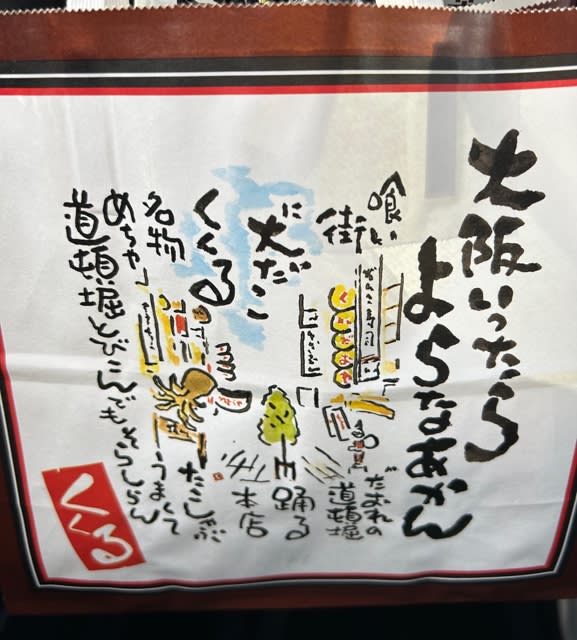 大阪いったら
よらなあかん
喰い
だおれの
街
道頓堀
に
踊る
大だこ
くくる
本店
名物
たこしゃぶ
うまくて
めちゃ
道頓堀とびこんでもそらしらん
がんこ寿司
くいだおれ
くくる